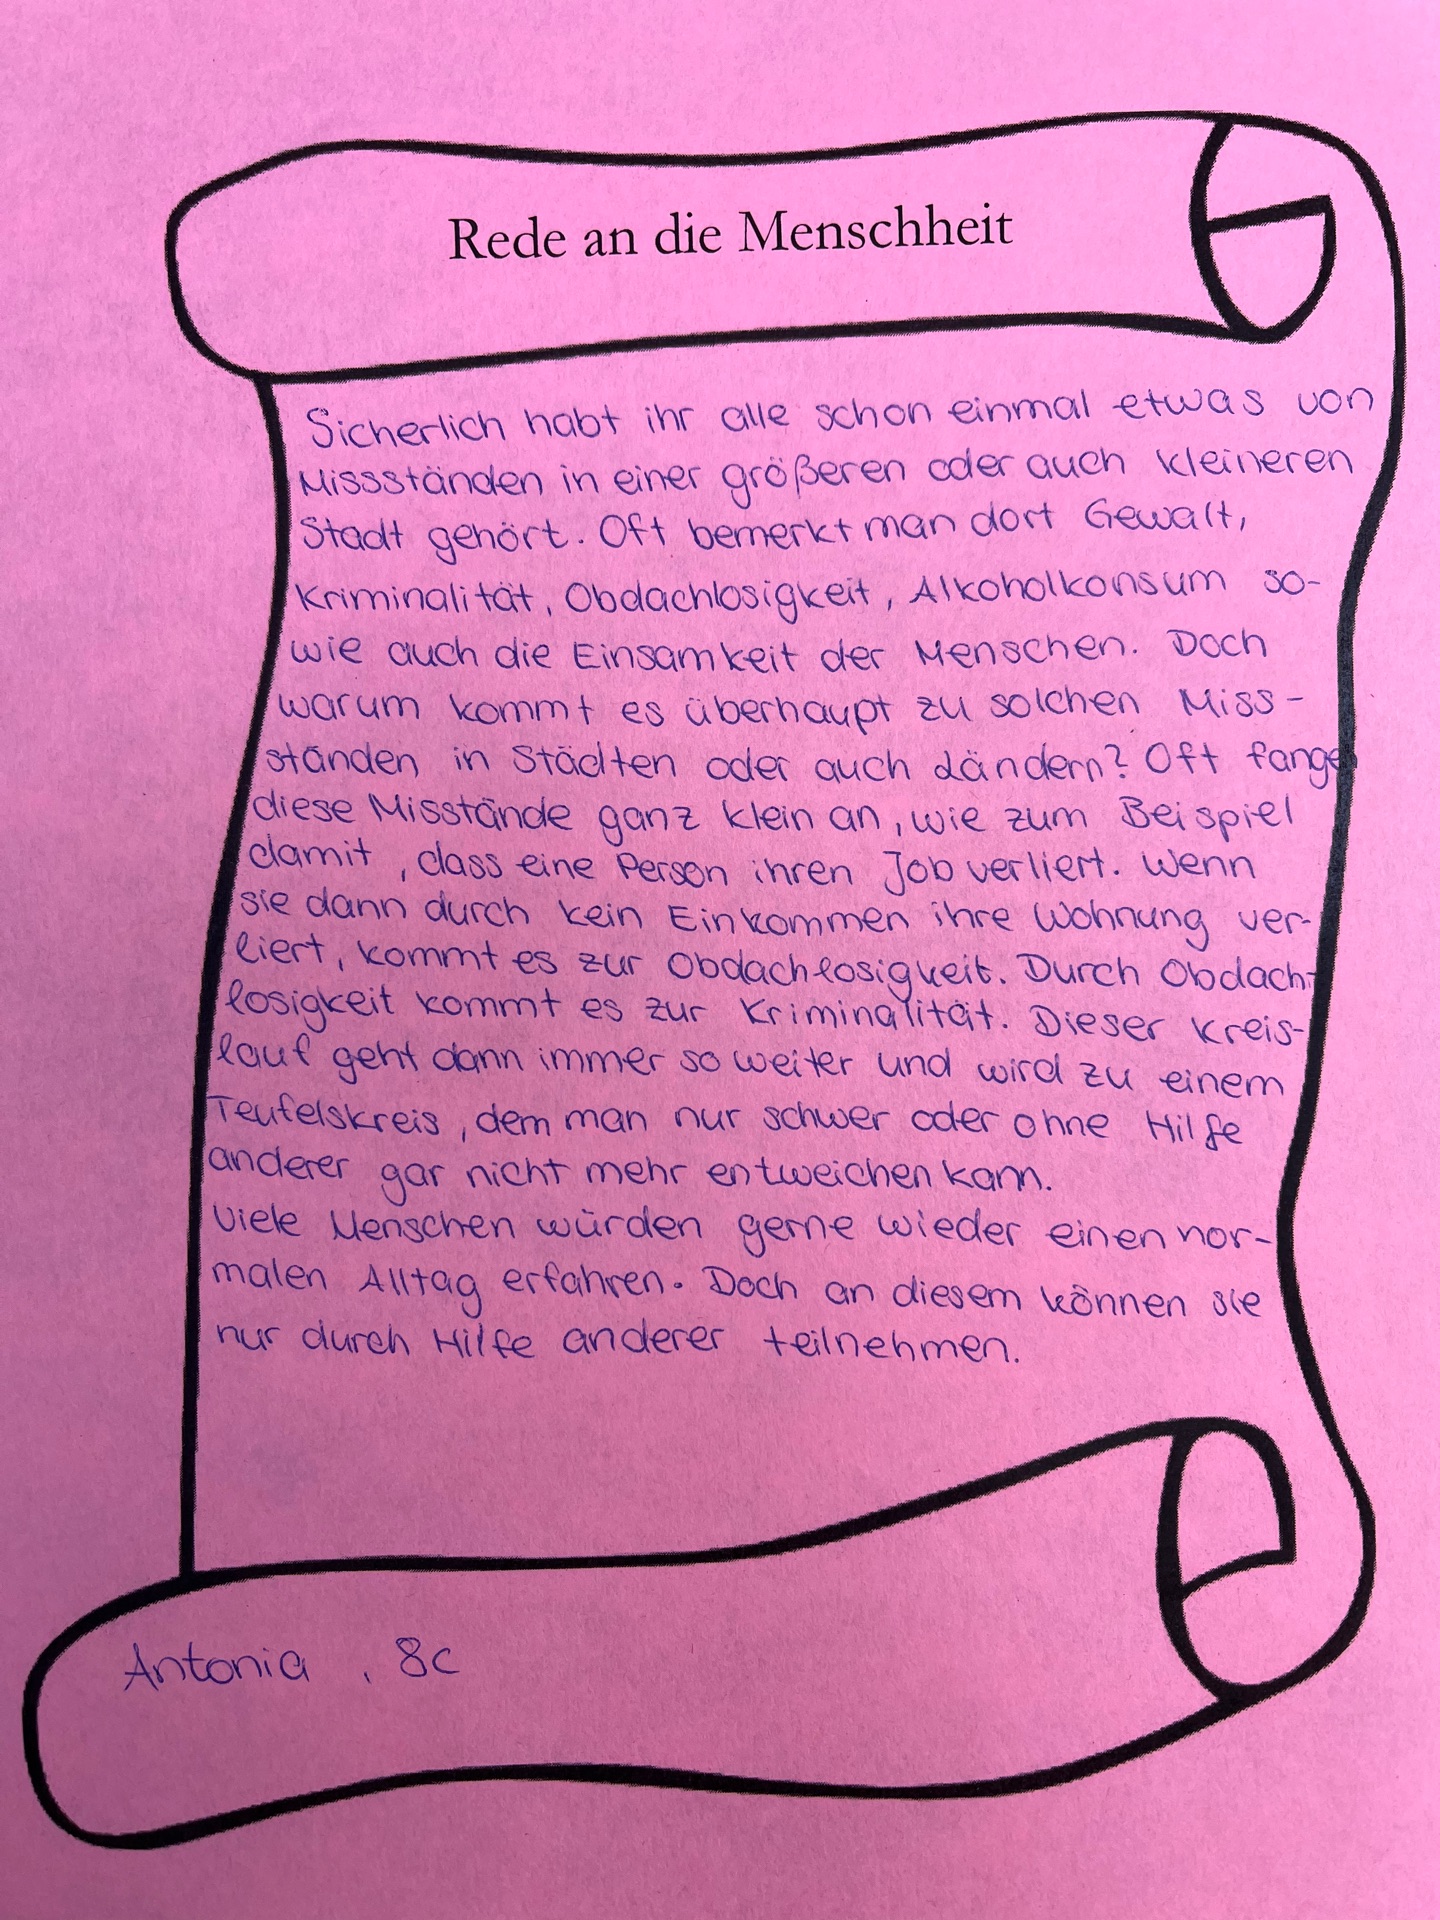 Rede an die Menschheit
Sicherlich habt ihr alle schon einmal etwas von
Missständen in einer größeren oder auch kleineren
Stadt gehört. Oft bemerkt man dort Gewalt,
Kriminalität, Obdachlosigkeit, Alkoholkonsum so-
wie auch die Einsamkeit der Menschen. Doch
warum kommt es überhaupt zu solchen Miss-
ständen in Städten oder auch Ländern? Oft fangen
diese Misstände ganz klein an, wie zum Beispiel
damit, dass eine Person ihren Job verliert. Wenn
sie dann durch kein Einkommen ihre Wohnung ver-
liert, kommt es zur Obdachlosigkeit. Durch Obdach-
losigkeit kommt es zur Kriminalität. Dieser Kreis-
lauf geht dann immer so weiter und wird zu einem
Teufelskreis, dem man nur schwer oder ohne Hilfe
anderer gar nicht mehr entweichen kann.
Viele Menschen würden gerne wieder einen nor-
malen Alltag erfahren. Doch an diesem können sie
nur durch Hilfe anderer teilnehmen.
Antonia , 8c